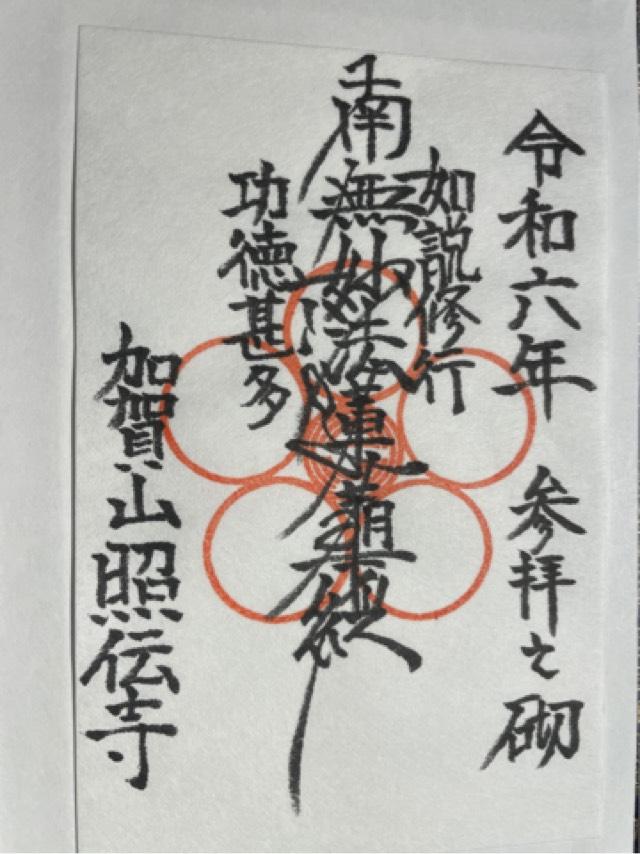 令和六年 参拝之砌
如説修行
南無妙法蓮華経
功徳甚多
加賀山照伝寺